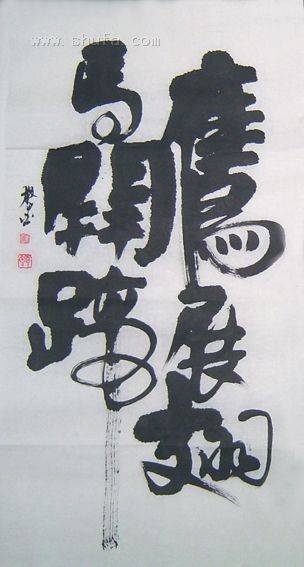 www.shufa.com
鷹展翅
马開蹄